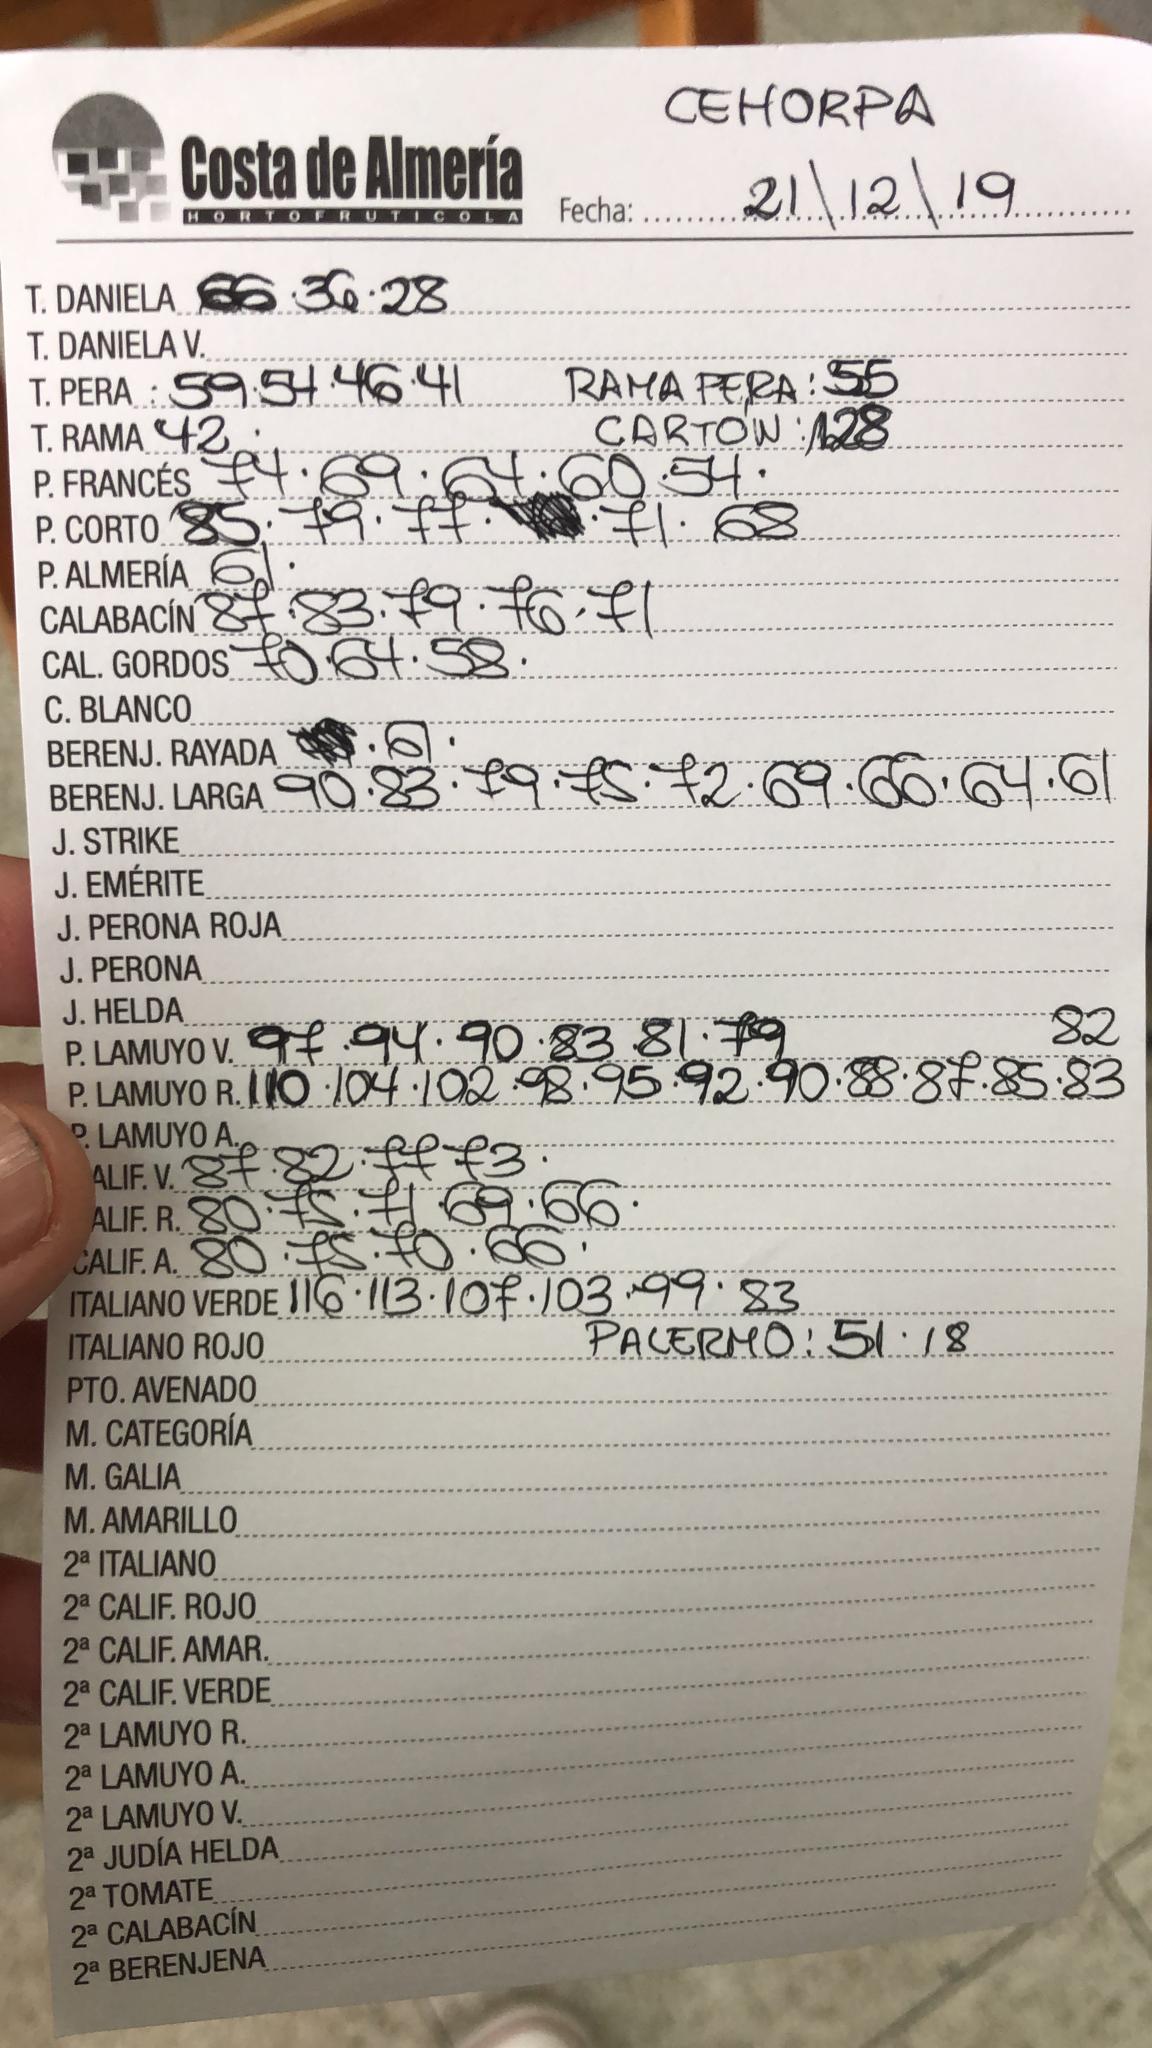 CEHORPA
Costa de Almería
HORTOFRUTICOLA
Fecha: 21\12\19
T. DANIELA 66.36.28
T. DANIELA V.
T. PERA : 59.51.46.41 RAMA PERA: 55
T. RAMA 42. CARTON: 128
P. FRANCÉS 74.69.64.60.54.
P. CORTO 85.79.77. .71.68
P. ALMERÍA 61.
CALABACÍN 87.83.79.76.71
CAL. GORDOS 70.64.58.
C. BLANCO
BERENJ. RAYADA .61.
BERENJ. LARGA 90.83.79.75.72.69.66.64.61
J. STRIKE
J. EMÉRITE
J. PERONA ROJA
J. PERONA
J. HELDA
P. LAMUYO V. 97.94.90.83.81.79 82
P. LAMUYO R. 110.104.102.98.95.92.90.88.87.85.83
P. LAMUYO A.
ALIF. V. 87.82.77.73.
ALIF. R. 80.75.71.69.66.
CALIF. A. 80.75.70.66.
ITALIANO VERDE 116.113.107.103.99.83
ITALIANO ROJO PALERMO: 51.18
PTO. AVENADO
M. CATEGORÍA
M. GALIA
M. AMARILLO
2ª ITALIANO
2ª CALIF. ROJO
2ª CALIF. AMAR.
2ª CALIF. VERDE
2ª LAMUYO R.
2ª LAMUYO A.
2ª LAMUYO V.
2ª JUDÍA HELDA
2ª TOMATE
2ª CALABACÍN
2ª BERENJENA